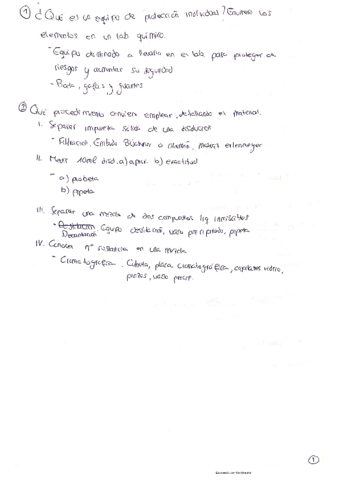 ① ¿Qué es un equipo de protección individual? Enumera los
elementos en un lab químico.
- Equipo destinado a llevarlo en el lab para proteger de
riesgos y aumentar su seguridad
- Bata, gafas y guantes
② Qué procedimiento conviene emplear, detallando el material.
I. Separar impureza sólida de una disolución
- Filtración. Embudo Büchner o cónico, matraz erlenmeyer
II. Medir 10ml disol. a) aprox. b) exactitud
- a) probeta
b) pipeta
III. Separar una mezcla de dos compuestos líq inmiscibles
- Destilación Equipo destilación, vaso precipitado, pipeta
Decantación
IV. Conocer nº sustancias en una mezcla
- Cromatografía. Cubeta, placa cromatográfica, capilares vidrio,
pinzas, vaso precip.
①